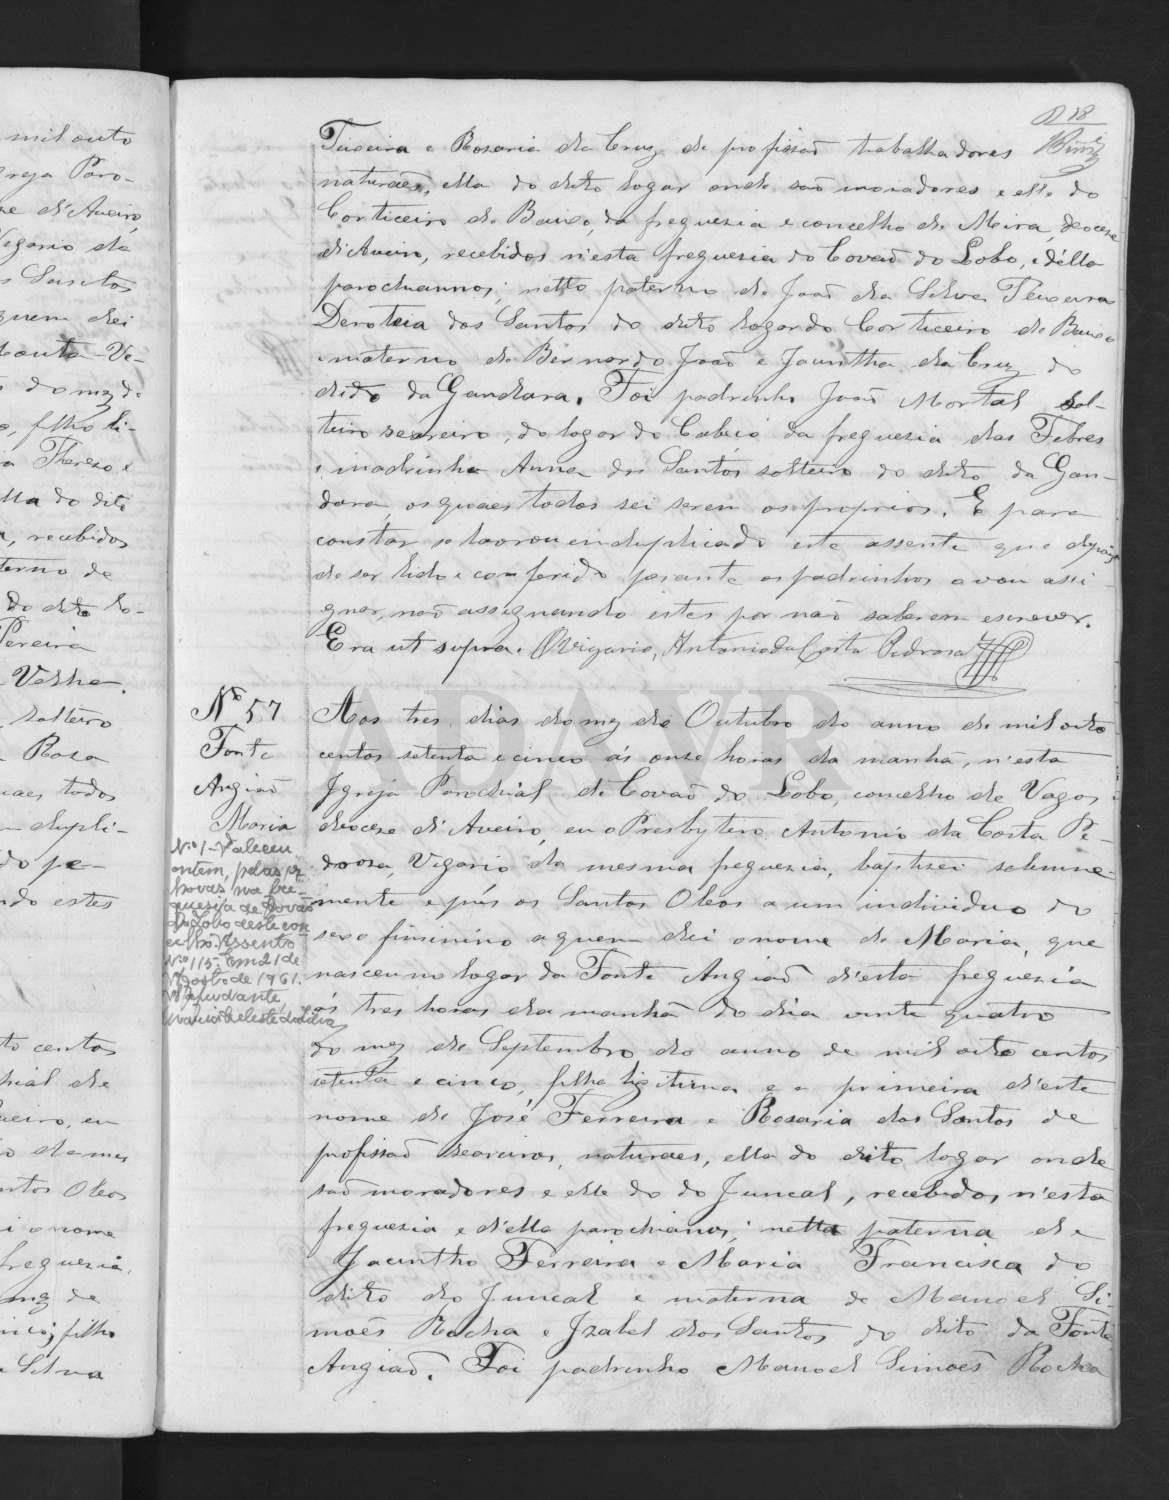 18
Teixeira e Rosaria da Cruz de profissaõ trabalhadores
naturaes, ella do dito logar onde saõ moradores e elle do
Corticeiro de Baixo, da freguezia e concelho de Mira, diocese
d'Aveiro, recebidos n'esta freguezia do Covaõ do Lobo, e d'ella
parochiannos; netto paterno de Joaõ da Silva Teixeira
Deroteia dos Santos do dito logar do Corticeiro de Baixo
e materno de Bernardo Joaõ e Jacintha da Cruz do
dito da Gandara. Foi padrinho Joaõ Mortal sol-
teiro seareiro, do logar do Cabeço da freguezia das Febres
e madrinha Anna dos Santos solteira do dito da Gan-
dara, os quaes todos sei serem os proprios. E para
constar se lavrou em duplicado este assento que depois
de ser lido e conferido perante os padrinhos o vou assi-
gnar, naõ assignando estes por naõ saberem escrever.
Era ut supra. O Vigario, Antonio da Costa Pedrosa
Nº 57
Fonte
Angiaõ
Maria
Nº 1 - Faleceu
ontem, pelas
horas na fre-
guesia de Covão
do Lobo deste con-
celho. Assento
Nº 115. Em 21 de
Agosto de 1961.
O Ajudante,
Maria Celeste da Silva
Aos tres dias do mez de Outubro do anno de mil oito
centos setenta e cinco ás onze horas da manhã, n'esta
Igreja Parochial de Covaõ do Lobo, concelho de Vagos
diocese d'Aveiro, eu o Presbytero Antonio da Costa Pe-
drosa, Vigario da mesma freguezia, baptizei solemne-
mente e puz os Santos Oleos a um individuo do
sexo feminino a quem dei o nome de Maria, que
nasceu no logar da Fonte Angiaõ d'esta freguezia
ás tres horas da manhã do dia vinte quatro
do mez de Septembro do anno de mil oito centos
setenta e cinco, filha ligitima e a primeira d'este
nome de José Ferreira e Rosaria dos Santos de
profissaõ seareiros, naturaes, ella do dito logar onde
saõ moradores e elle do do Juncal, recebidos n'esta
freguezia e d'ella parochianos; netta paterna de
Jacintho Ferreira e Maria Francisca do
dito do Juncal e materna de Manoel Si-
moẽs Rocha e Izabel dos Santos do dito da Fonte
Angiaõ. Foi padrinho Manoel Simoẽs Rocha
ADAVR
mil outo
greja Paro-
d'Aveiro,
Vegario da
Santos
quem dei
Ve-
do mez de
filho li-
Thereza e
ella do dito
recebidos
terno de
do dito lo-
Pereira
Velha.
solteiro
Rosa
quaes todos
dupli-
do pe-
ndo estes
to centos
chial de
Aveiro, eu
da mes
ntos Oleos
i o nome
freguezia
mez de
filho
Silva